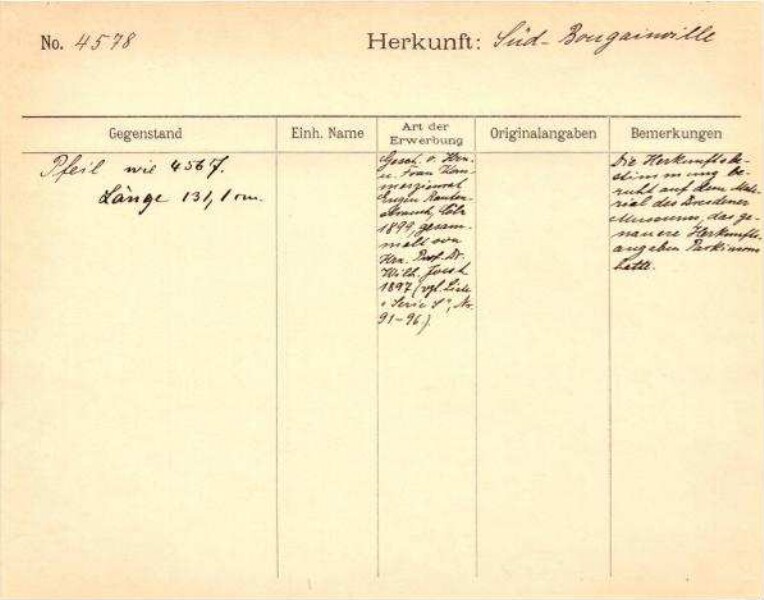 No. 4578
Herkunft: Süd-Bougainville
Gegenstand
Einh. Name
Art der
Erwerbung
Originalangaben
Bemerkungen
Pfeil wie 4567.
Länge 131,1 cm.
Gesch. v. Hrn.
u. Frau Kom-
merzienrat
Eugen Rauten-
strauch, Cöln
1899, gesam-
melt von
Hrn. Prof. Dr.
Wilh. Joest
1897 (vgl. Liste
"Serie S", Nr.
91-96.)
Die Herkunftsbe-
stimmung be-
ruht auf dem Mate-
rial des Dresdener
Museums, das ge-
nauere Herkunfts-
angaben Parkinsons
hatte.